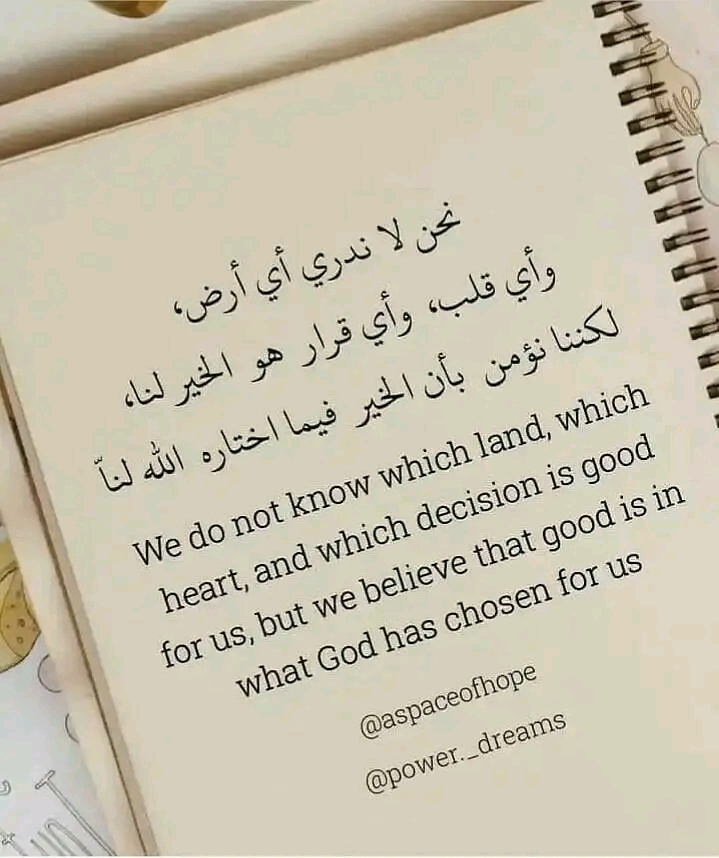 نحن لا ندري أي أرض،
وأي قلب، وأي قرار هو الخير لنا،
لكننا نؤمن بأن الخير فيما اختاره الله لناّ
We do not know which land, which
heart, and which decision is good
for us, but we believe that good is in
what God has chosen for us
@aspaceofhope
@power._dreams